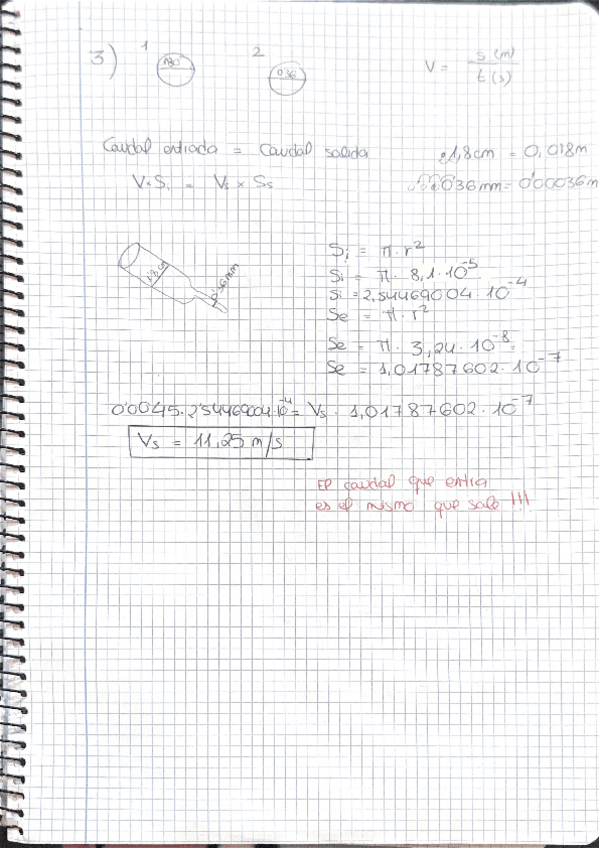 3) 1 2 V = s (m) / t (s)
0,36
Caudal entrada = Caudal salida 1,8cm = 0,018m
V × Si = Vs × Ss 0'36mm = 0'00036m
1,8 cm 0'36mm
Si = π · r²
Si = π · 8,1 · 10⁻⁵
Si = 2,54469004 · 10⁻⁴
Se = π · r²
Se = π · 3,24 · 10⁻⁸
Se = 1,01787602 · 10⁻⁷
0'0045 · 2'54469004 · 10⁻⁴ = Vs · 1,01787602 · 10⁻⁷
Vs = 11,25 m/s
El caudal que entra
es el mismo que sale !!!